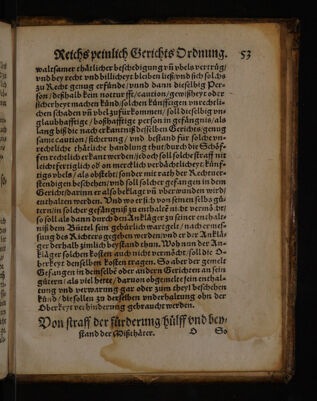 Reichs peinlich Gerichts Ordnung. 53
waltsamer thätlicher beschedigung vñ vbels vertrüg/
vnd bey recht vnd billicheyt bleiben ließ/vnd sich solchs
zu Recht genug erfünde/ vnnd dann dieselbig Per-
son/deßhalb kein notturfft/caution/gewißheyt oder
sicherheyt machen künd/solchen künfftigen vnrechtli-
chen schaden vñ vbel zufürkommen/ soll dieselbig vn
glaubhafftige/ boßhafftige person in gefängnis/als
lang biß die nach erkantniß desselben Gerichts/genug
same caution/sicherung/ vnd bestand für solche vn-
rechtliche thätliche handlung thut/durch die Schöf-
fen rechtlich erkant werden/jedoch soll solche straff nit
leichtfertiglich oder on mercklich verdächlicheyt künff-
tigs vbels/ als obsteht/sonder mit rath der Rechtuer-
stendigen beschehen/vnd soll solcher gefangen in dem
Gericht/darinn er als beklagt vñ vberwunden wird/
enthalten werden. Vnd wo er sich von seinen selbs gü-
tern/in solcher gefängniß zu enthaltē nit vermöcht/
so soll als dann durch den Ankläger zu seiner enthalt-
niß dem Büttel sein gebürlich wartgelt/nach ermes-
sung des Richters gegeben werden/vnd er der Anklä-
ger derhalb zimlich bestand thun. Wo nun der An-
kläger solchen kosten auch nicht vermöcht/soll die O-
berkeyt denselben kosten tragen. So aber der gemelt
Gefangen in demselbē oder andern Gerichten an sein
gütern/ als viel hette/ daruon obgemelt sein enthal-
tung vnd verwarung gar oder zum theyl beschehen
künd/ die sollen zu derselben vnderhaltung ohn der
Oberkeyt verhinderung gebraucht werden.
Von straff der fürderung/hülff vnd bey-
stand der Mißthäter.
O So